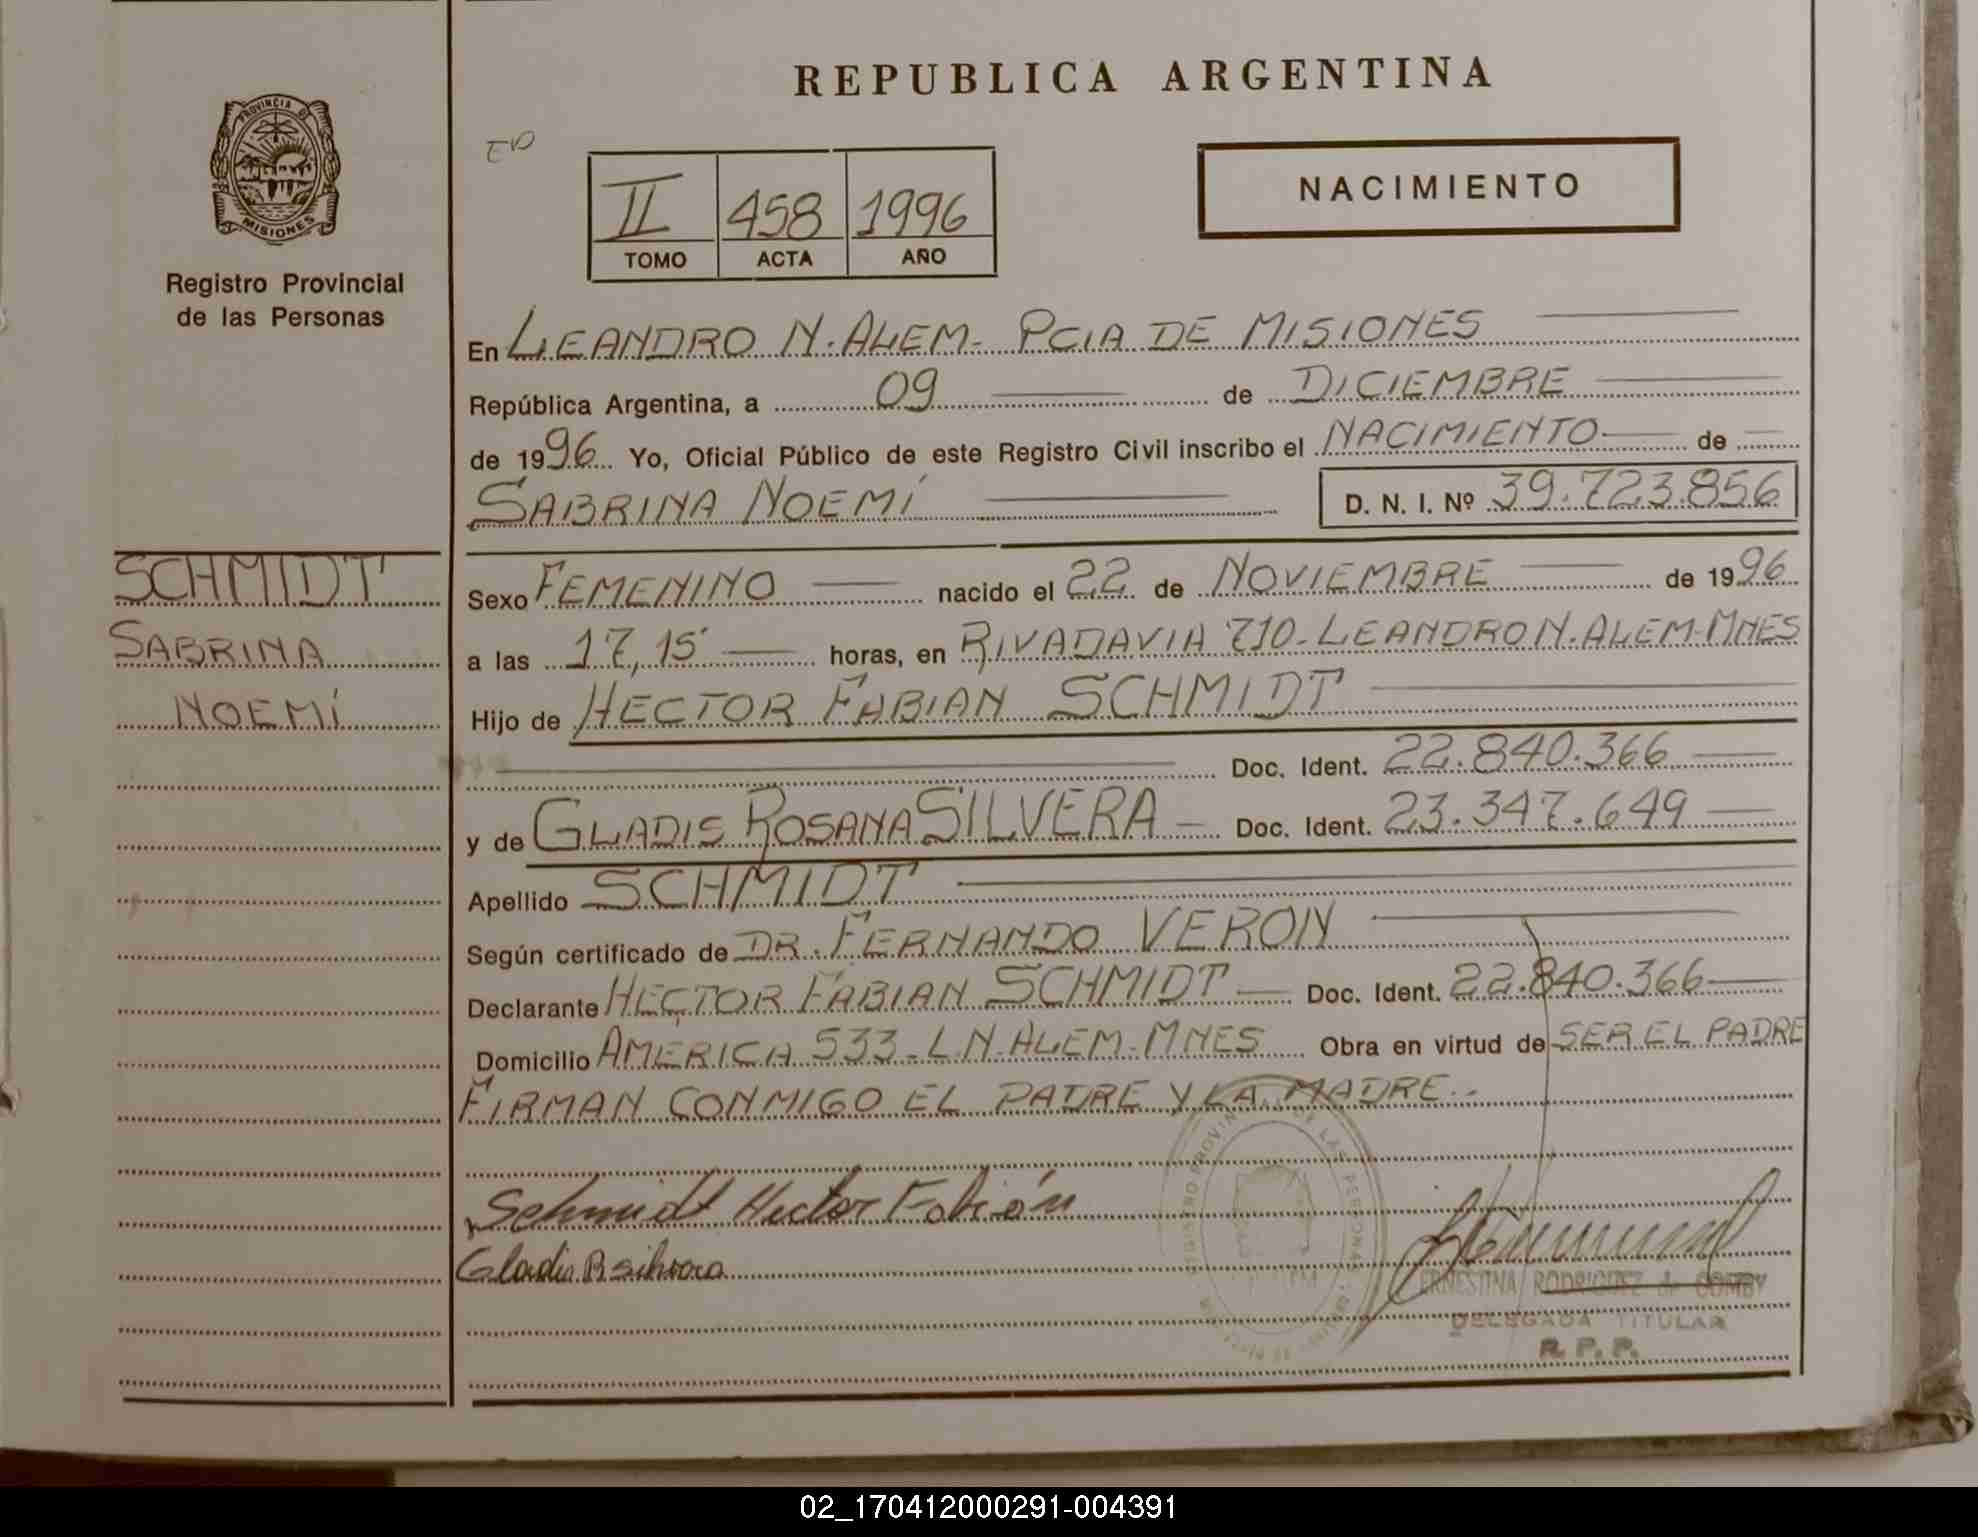 REPUBLICA ARGENTINA
PROVINCIA DE
MISIONES
Registro Provincial
de las Personas
ED
II 458 1996
TOMO ACTA AÑO
NACIMIENTO
En LEANDRO N. ALEM - PCIA DE MISIONES
República Argentina, a 09 de DICIEMBRE
de 1996 Yo, Oficial Público de este Registro Civil inscribo el NACIMIENTO de
SABRINA NOEMÍ D. N. I. Nº 39.723.856
SCHMIDT
SABRINA
NOEMÍ
Sexo FEMENINO nacido el 22 de NOVIEMBRE de 1996
a las 17,15 horas, en RIVADAVIA 710 - LEANDRO N. ALEM - MNES
Hijo de HECTOR FABIAN SCHMIDT
Doc. Ident. 22.840.366
y de GLADIS ROSANA SILVERA - Doc. Ident. 23.347.649
Apellido SCHMIDT
Según certificado de DR. FERNANDO VERON
Declarante HECTOR FABIAN SCHMIDT Doc. Ident. 22.840.366
Domicilio AMERICA 533 - L.N. ALEM - MNES Obra en virtud de SER EL PADRE
FIRMAN CONMIGO EL PADRE Y LA MADRE..
Schmidt Hector Fabián
Gladis R silvera
ERNESTINA RODRIGUEZ de GOMBY
DELEGADA TITULAR
R. P. P.
02_170412000291-004391